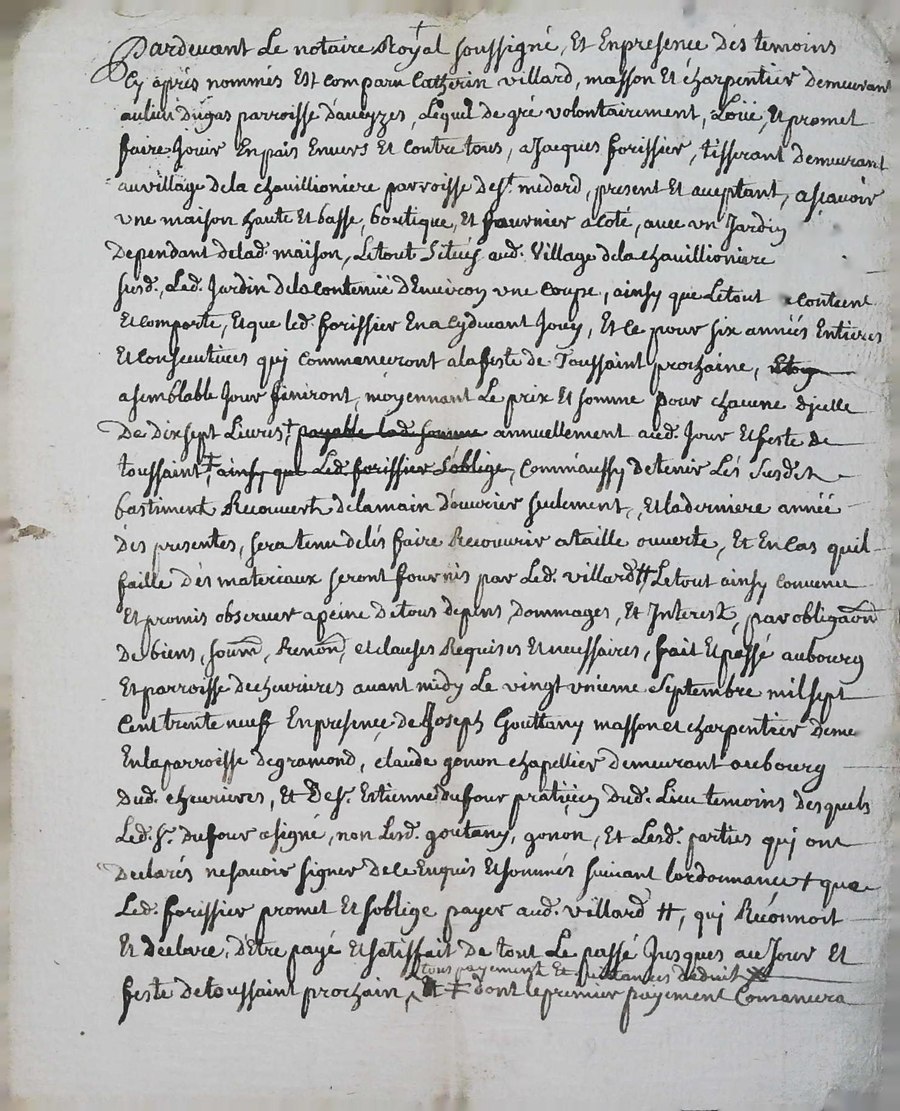 Pardevant Le notaire Royal soussigné, Et Enpresence Des temoins
Cy aprés nommés Est comparu Catherin villard, masson Et charpentier Demeurant
aulieu Dugas parroisse d'aveyzes, Lequel de gré volontairement, Loüe, Et promet
faire Jouir Enpais Envers Et contre tous, a Jacques forissier, tisserant demeurant
auvillage dela chouillioniere parroisse de St. medard, present Et aceptant, asçavoir
vne maison haute Et basse, boutique, Et fournier a coté, avec vn Jardin
Dependant delad. maison, Letout Situés aud. Village dela chouillioniere
susd., Led. Jardin dela contenüe d'Environ vne coupe, ainsy que Letout contient
Et comporte, Et que led. forissier En a Cydevant Jouy, Et ce pour six années Entieres
Et consecutives qui commanceront alafeste de Toussaint prochaine,
asemblable Jour finiront, moyennant Le prix Et somme pour chacune d'jcelle
De Dixsept Livres,+ payable lad. somme annuellement aud. Jour Et feste de
toussaint ‡, ainsy que Led. forissier s'oblige, comm'aussy detenir Lés susdits
bastiment Recouverts delamain d'ouvrier seulement, Et laderniere année
Dés presentes, sera tenu delés faire Recouvrir a taille ouverte, Et En cas quil
faille dés materiaux seront fournis par Led. villard ++ Letout ainsy convenu
Et promis observer apeine detous depens Dommages, Et Interest, par obligaõn
De biens, soum., Renon., et clauses Requises Et necessaires, fait Et passé aubourg
Et parroisse dechevrieres avant midy Le vingt vnieme Septembre mil sept
Cent trente neuf Enpresence de Joseph Gouttany masson et charpentier deme
Enlaparroisse degramond, claude gonon chapellier demeurant aubourg
Dud. chevrieres, Et De sr. Estienne dufour praticien Dud. Lieu temoins desquels
Led. sr. dufour a signé, non Lesd. goutany, gonon, Et Lesd. parties qui ont
Declarés nesavoir signer de ce Enquis Et sommés suivant lordonnance + que
Led. forissier promet Et s'oblige payer aud. villard ++, qui Réconnoit
Et declare, d'etre payé Et satisfait de tout Le passé Jusques au Jour Et
tous payements Et quittances deduit
feste detoussaint prochain, Et ‡ dont le premier payement Comancera